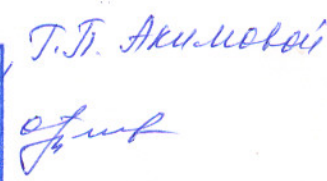 , Т.П. Акимовой